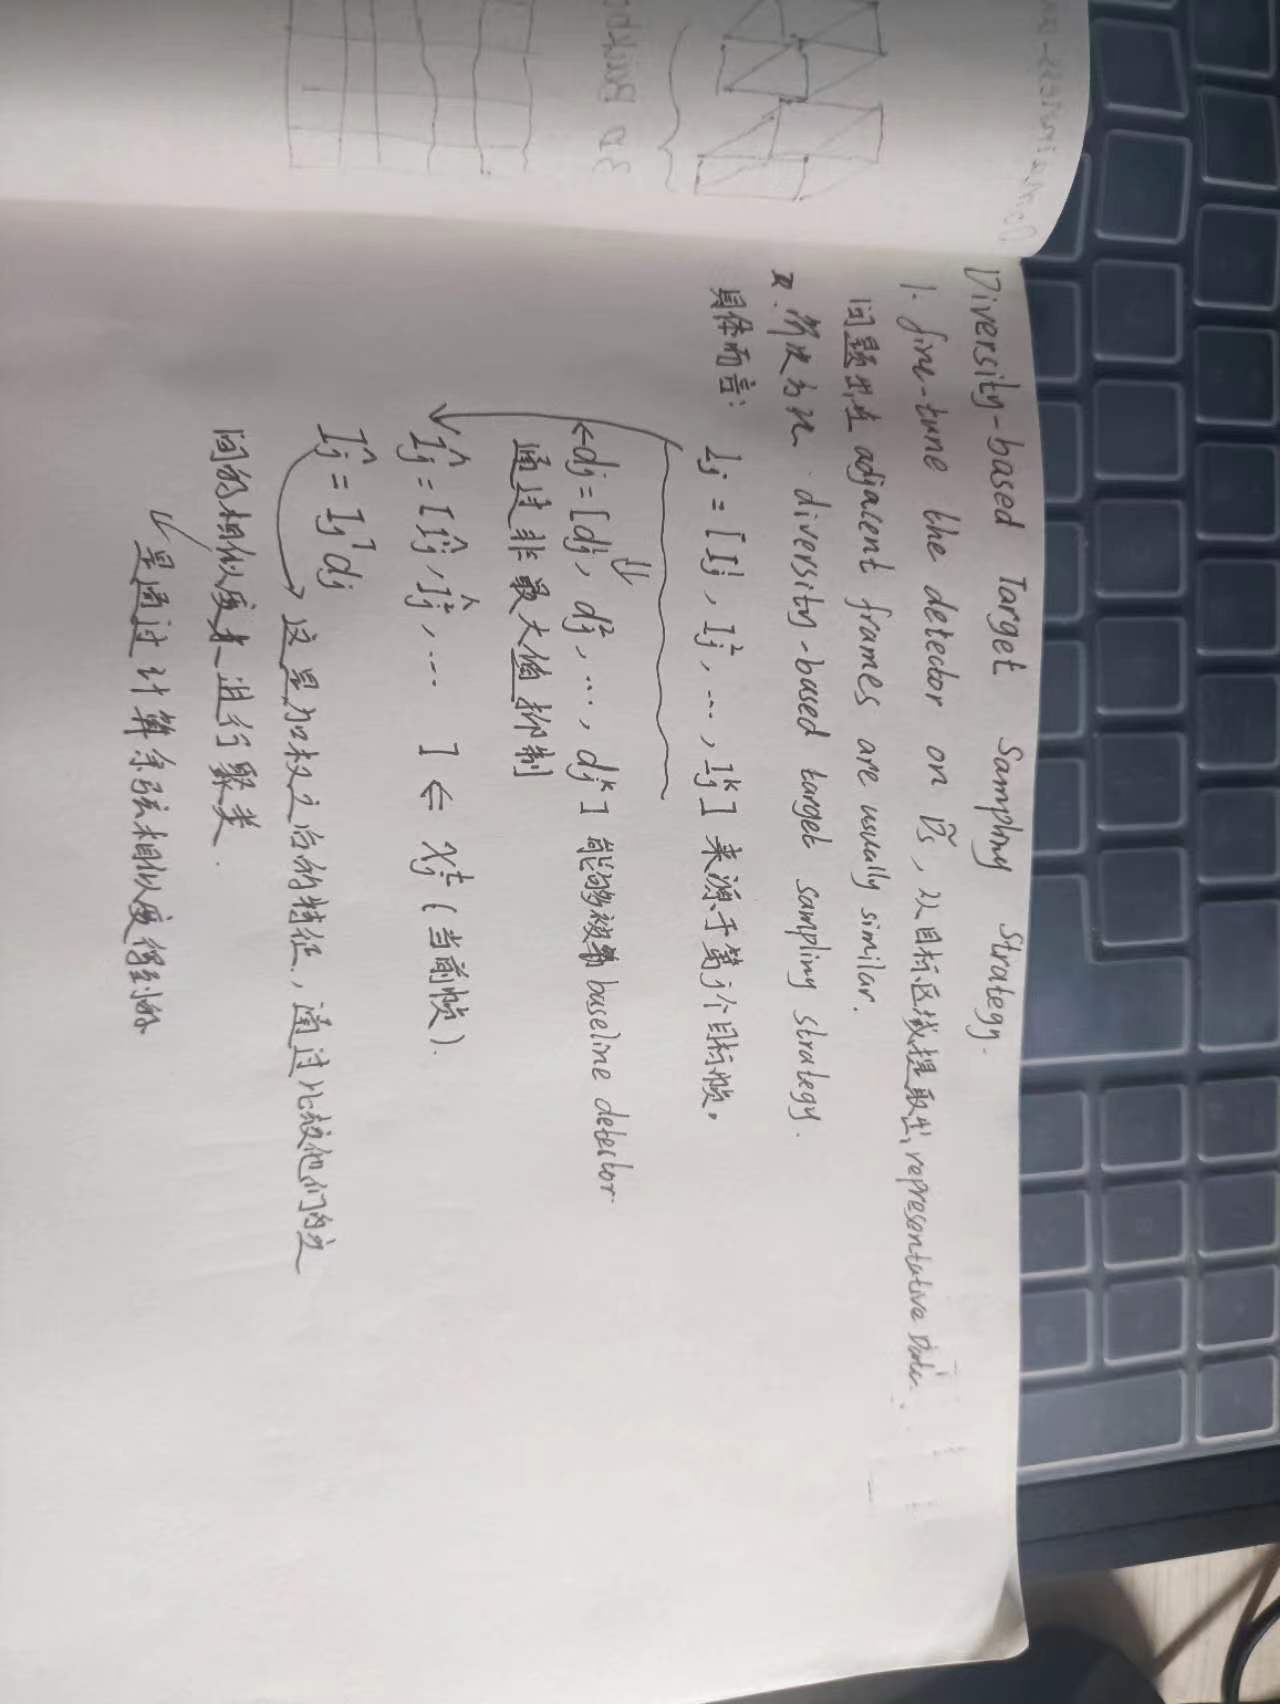 Diversity-based Target Sampling Strategy.
1. fine-tune the detector on D̃s, 从目标区域提取出 representative Data.
问题出在 adjacent frames are usually similar.
解决办法 diversity-based target sampling strategy.
具体而言:
Ij = [Ij^1, Ij^2, ..., Ij^k] 来源于第j个目标帧。
dj = [dj^1, dj^2, ..., dj^k] 能够被 baseline detector
通过非最大值抑制
Îj = [Îj^1, Îj^2, ... ] ⇐ Xj^t (当前帧).
Îj = Ij^T dj
这是加权之后的特征, 通过比较他们的之
间的相似度来进行聚类.
是通过计算余弦相似度得到的
3D Backbo